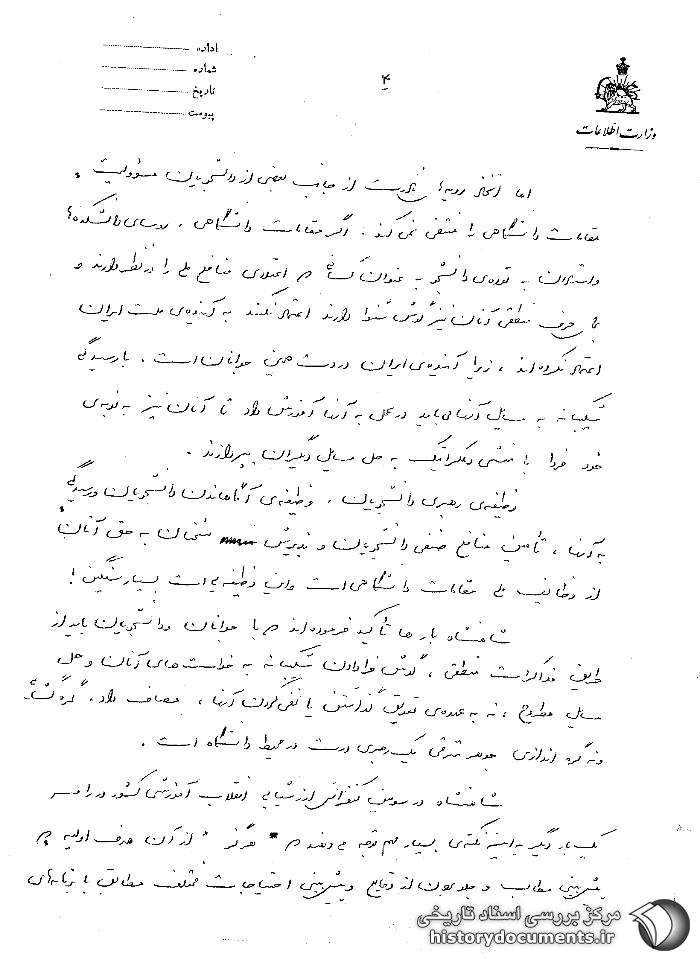 اداره
شماره
تاریخ
پیوست
۴
وزارت اطلاعات
اما اتخاذ رویه‌ای نادرست از جانب بعضی از دانشجویان مسؤولیت
مقامات دانشگاهی را منتفی نمی‌کند. اگر مقامات دانشگاهی، روسای دانشکده‌ها
و استادان به توده‌ی دانشجو به عنوان کسانی که اعتلای منافع ملی را در نظر دارند و
حرف منطقی آنان نیز گوش شنوا دارند اعتماد نکنند به آینده‌ی ملت ایران
اعتماد نکرده‌اند، زیرا آینده‌ی ایران در دست همین جوانان است. با رسیدگی
شکیبانه به مسایل آنها می‌باید در عمل به آنها آموزش داد تا آنان نیز به نوبه‌ی
خود فردا با منشی دمکراتیک به حل مسایل دیگران بپردازند.
وظیفه‌ی رهبری دانشجویان، وظیفه‌ی آگاهاندن دانشجویان و رسیدگی
به آنها، تأمین منافع صنفی دانشجویان و پذیرش سخنان به حق آنان
از وظایف ملی مقامات دانشگاهی است و این وظیفه‌یی است بسیار سنگین!
شاهنشاه بارها تأکید فرموده‌اند که با جوانان و دانشجویان باید از
طریق مذاکرات منطقی، گوش فرا دادن شکیبانه به خواست‌های آنان و حل
مسایل مطروح، نه به عهده‌ی تعویق گذاشتن یا نفی کردن آنها، مصاف داد. گره‌گشایی
و نه گره اندازی جوهر مترقی یک رهبری درست در محیط دانشگاه است.
شاهنشاه در سومین کنفرانس ارزشیابی انقلاب آموزشی کشور در رامسر
یک بار دیگر به این نکته‌ی بسیار مهم توجه می‌دهند که "هرگز" از آن هدف اولیه که
پیش‌بینی مطالب و جلو بودن از وقایع و پیش‌بینی احتیاجات مختلف مطابق با برنامه‌های
مرکز بررسی اسناد تاریخی
historydocuments.ir